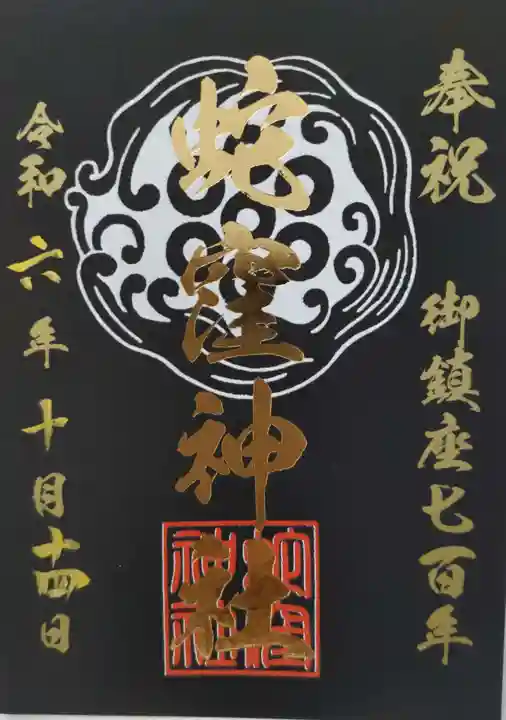 奉祝 御鎮座七百年
蛇窪神社
蛇窪神社
令和六年十月十四日